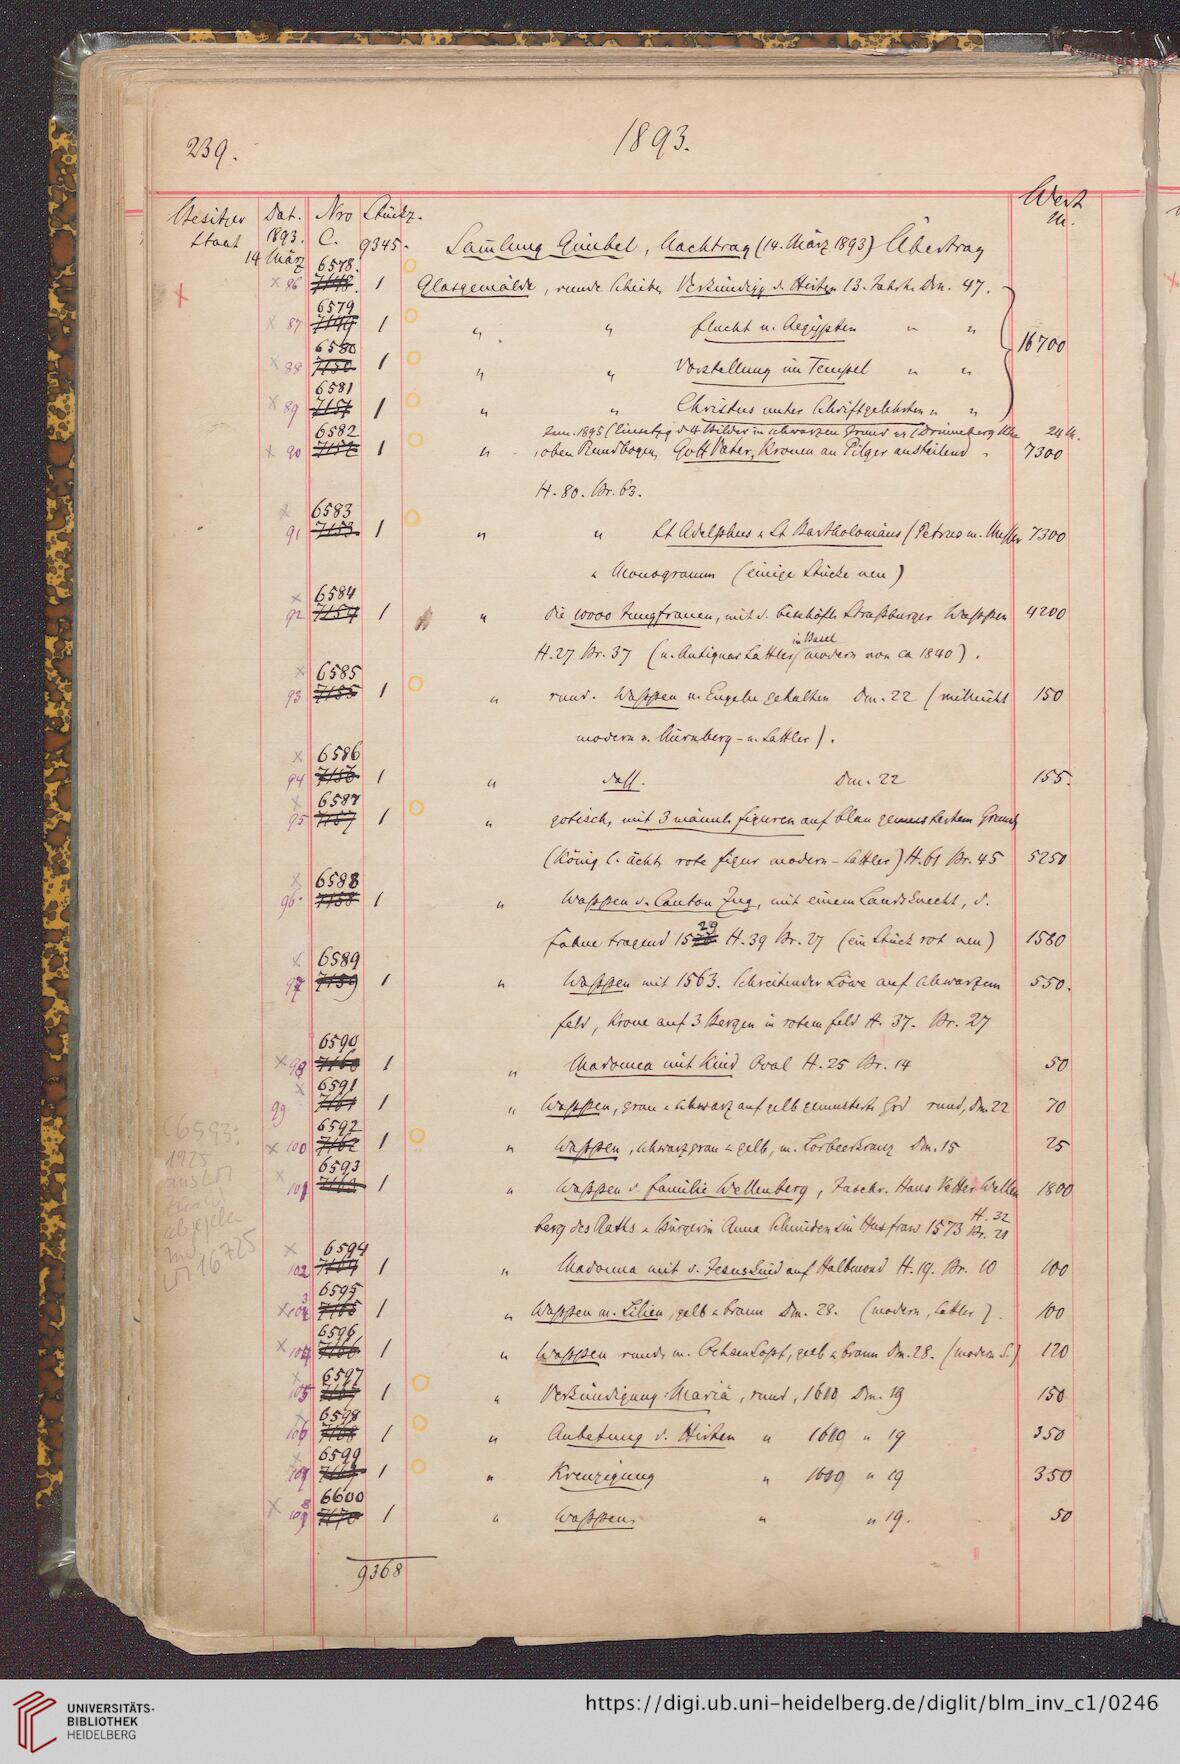 239.
1893.
Besitzer Dat. Nro Stückz. Wert
Staat 1893. C. 9345. Sammlung Gimbel, Nachtrag (14. März 1893) Übertrag M.
14 März 6578.
× 86 7148. 1 Glasgemälde, runde Scheibe, Verkündigg d. Hirten 13. Jahrh. Dm. 47.
6579
× 87 7149 1 " " Flucht n. Aegypten " " 16700
6580
× 88 7150 1 " " Vorstellung im Tempel " "
6581
× 89 7151 1 " " Christus unter Schriftgelehrten " "
6582 1895 (Einsetzg d. 4 Bilder in schwarzen Grund 24 M.
× 90 7152 1 " , oben Rundbogen, Gott Vater, Kronen an Pilger austeilend 7300
H. 80. Br. 63.
× 6583
91 7153 1 " " St Adelphus u. St Bartholomäus (Petrus m. Messer 7300
u. Monogramm (einige Stücke neu)
× 6584
92 7154 1 " die 10000 Jungfrauen, mit d. bischöfl. Straßburger Wappen 4200
in Basel
H. 27 Br. 37 (n. Antiquar Sattler modern von ca 1840).
× 6585
93 7155 1 " rund. Wappen v. Engeln gehalten Dm. 22 (vielleicht 150
modern n. Nürnberg - n. Sattler).
× 6586
94 7156 1 " dass. Dm. 22 155.
× 6587
95 7157 1 " gotisch, mit 3 männl. Figuren auf blau gemustertem Grund
(König l. ächt, rote Figur modern - Sattler) H. 61 Br. 45 5250
× 6588
96 7158 1 " Wappen d. Canton Zug, mit einem Landsknecht, d.
29
Fahne tragend 15 H. 39 Br. 27 (ein Stück rot neu) 1580
× 6589
97 7159 1 " Wappen mit 1563. Schreitender Löwe auf schwarzem 550.
Feld, Krone auf 3 Bergen in rotem Feld H. 37. Br. 27
6590
× 98 7160 1 " Madonna mit Kind Oval H. 25 Br. 14 50
× 6591
99 7161 1 " Wappen, grau u. schwarz auf gelb gemustert. Grd rund, Dm. 22 70
6592
× 100 7162 1 " Wappen, schwarzgrau u. gelb, m. Lorbeerkranz Dm. 15 25
6593:
1925
abgegeben
16725
6593
× 101 7163 1 " Wappen d. Familie Wellenberg, Inschr. Hans Vetter Wellen 1800
berg des Raths u. Bürger in Anna Schmiden sin Husfraw 1573 H. 32 Br. 21
× 6594
102 7164 1 " Madonna mit d. Jesuskind auf Halbmond H. 19. Br. 10 100
6595
× 103 7165 1 " Wappen m. Lilien, gelb u. braun Dm. 28. (modern, Sattler). 100
6596
× 104 7166 1 " Wappen rund, m. Ochsenkopf, gelb u. braun Dm. 28. (modern S.) 120
× 6597
105 7167 1 " Verkündigung Mariä, rund, 1609 Dm. 19 150
× 6598
106 7168 1 " Anbetung d. Hirten " 1609 " 19 350
× 6599
107 7169 1 " Kreuzigung " 1609 " 19 350
6600
× 108 7170 1 " Wappen, " " 19. 50
9368
UNIVERSITÄTS-
BIBLIOTHEK
HEIDELBERG
https://digi.ub.uni-heidelberg.de/diglit/blm_inv_c1/0246